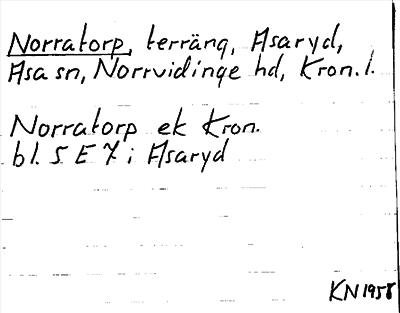 Norratorp, terräng, Asaryd,
Asa sn, Norrvidinge hd, Kron. l.
Norratorp ek Kron.
bl. 5 E 7 i Asaryd
KN 1958